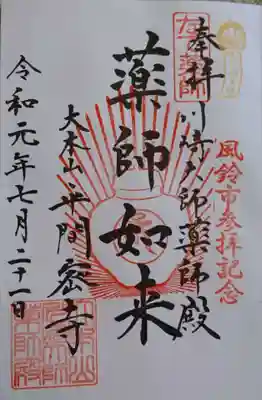 風鈴市参拝記念
奉拝
川崎大師薬師殿
薬師如来
大本山平間密寺
令和元年七月二十一日